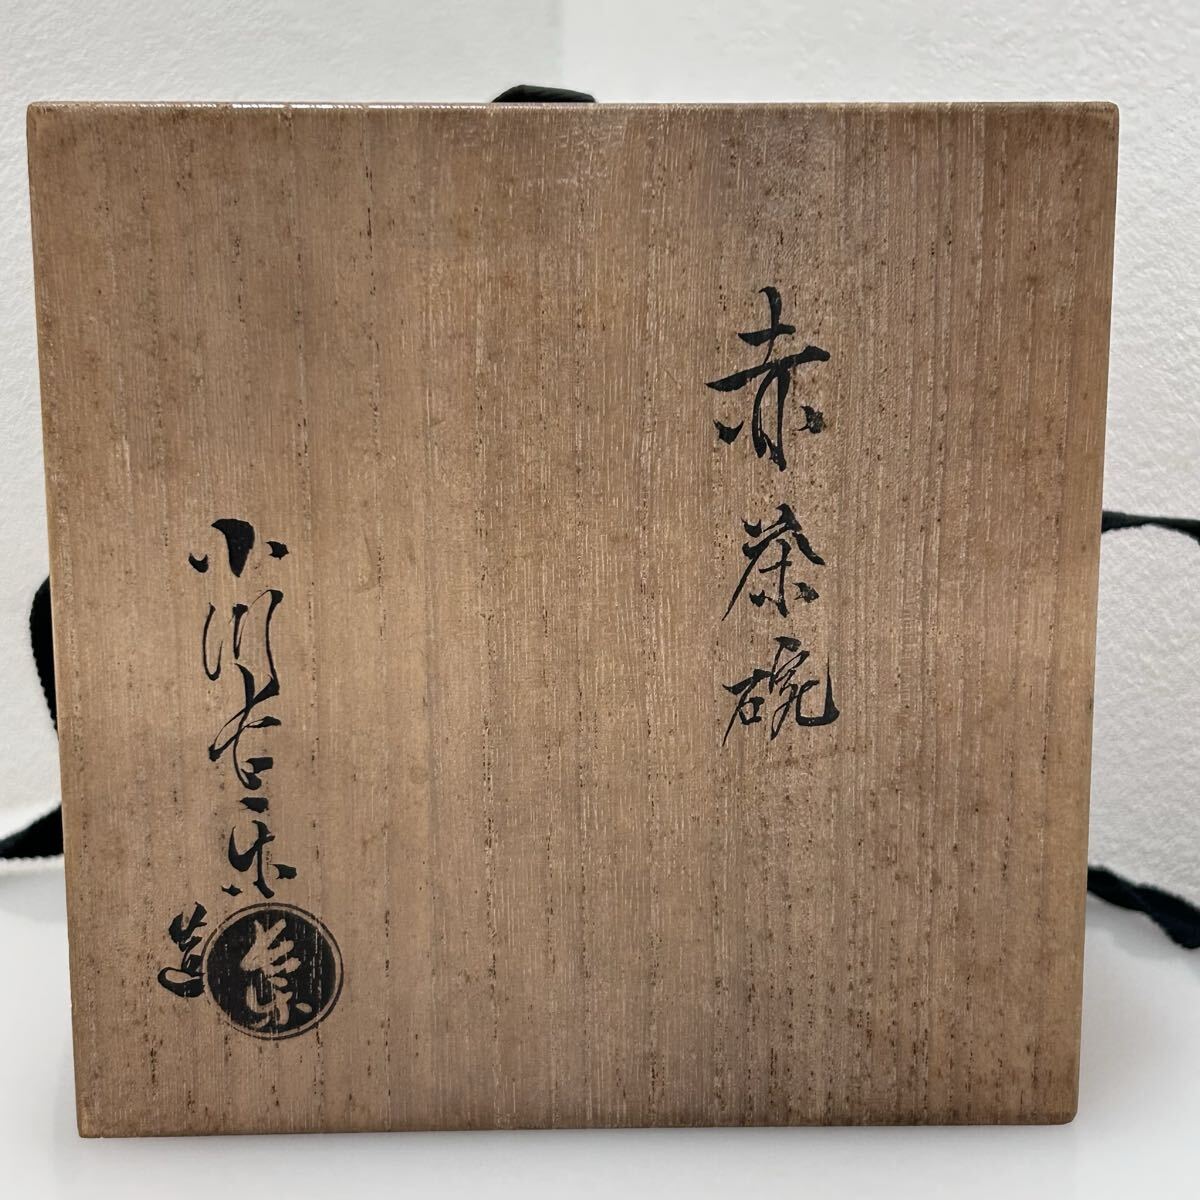 赤茶碗
小川長楽造